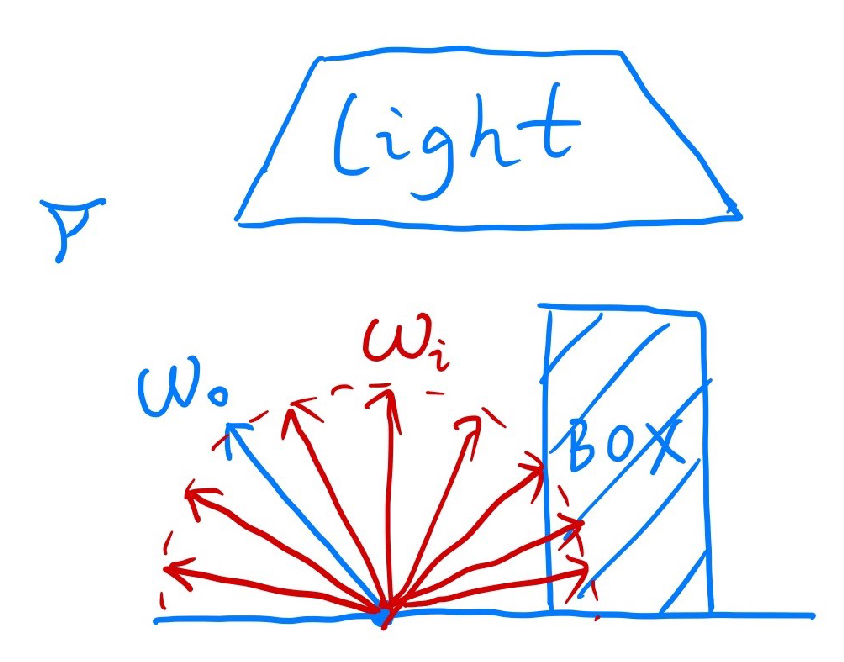 light
ωi
ωo
BOX